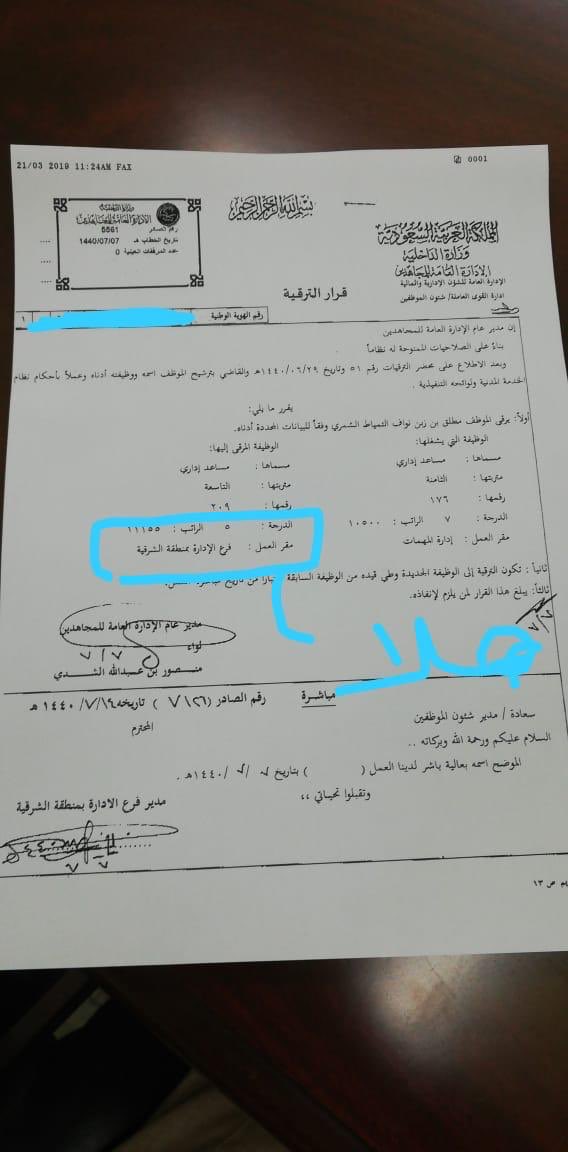 21/03 2019 11:24AM FAX
0001
بسم الله الرحمن الرحيم
المملكة العربية السعودية
وزارة الداخلية
الإدارة العامة للمجاهدين
الإدارة العامة للشؤون الإدارية والمالية
ادارة القوى العاملة/ شئون الموظفين
وزارة الداخلية
الإدارة العامة للمجاهدين
رقم الصادر
5561
تاريخ الخطاب هـ 1440/07/07
عدد المرفقات العينية 0
قرار الترقية
رقم الهوية الوطنية
١
إن مدير عام الإدارة العامة للمجاهدين
بناءً على الصلاحيات الممنوحة له نظاماً
وبعد الاطلاع على محضر الترقيات رقم ٥١ وتاريخ ١٤٤٠/٠٦/٢٩هـ والقاضي بترشيح الموظف اسمه ووظيفته أدناه وعملاً بأحكام نظام
الخدمة المدنية ولوائحه التنفيذية .
يقرر ما يلي:
أولاً: يرقى الموظف مطلق بن زبن نواف الثمياط الشمري وفقاً للبيانات المحددة أدناه.
الوظيفة التي يشغلها:
مسماها : مساعد إداري
مرتبتها : الثامنة
رقمها : ١٧٦
الدرجة : ٧ الراتب : ١٠٥٠٠
مقر العمل : إدارة المهمات
الوظيفة المرقى إليها:
مسماها : مساعد إداري
مرتبتها : التاسعة
رقمها : ٢٠٩
الدرجة : ٥ الراتب : ١١١٥٥
مقر العمل : فرع الإدارة بمنطقة الشرقية
ثانياً : تكون الترقية إلى الوظيفة الجديدة وطي قيده من الوظيفة السابقة من تاريخ
ثالثاً: يبلغ هذا القرار لمن يلزم لإنفاذه.
٧/٧
هلا
مدير عام الإدارة العامة للمجاهدين
لواء
٧/٧
منصور بن عبدالله الشدي
مباشرة
رقم الصادر (٧١٢٦) تاريخه ١٤٤٠/٧/١٤ هـ
سعادة / مدير شئون الموظفين
المحترم
السلام عليكم ورحمة الله وبركاته ..
الموضح اسمه بعالية باشر لدينا العمل ( ) بتاريخ ٧/٧/١٤٤٠هـ .
وتقبلوا تحياتي ،،
مدير فرع الادارة بمنطقة الشرقية
٧ ٧
ص ١٣